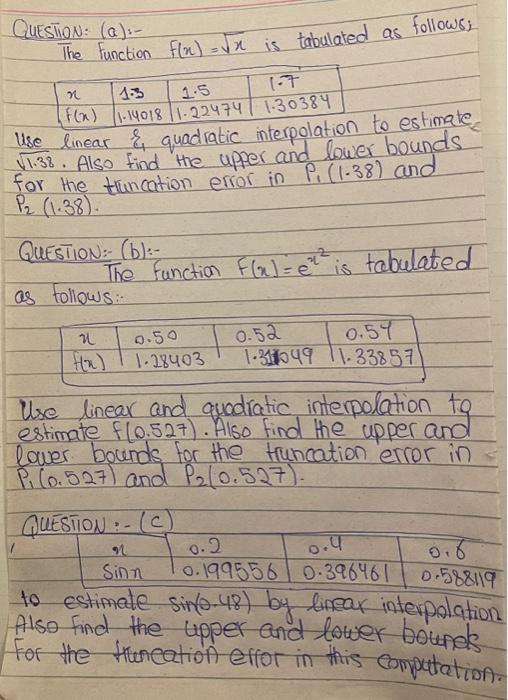 QUESTION: (a):-
The function f(x) = √x is tabulated as follows;
x 1.3 1.5 1.7
f(x) 1.14018 1.22474 1.30384
Use linear & quadratic interpolation to estimate
√1.38. Also find the upper and lower bounds
for the truncation error in P₁(1.38) and
P₂(1.38).
QUESTION:- (b):-
The function f(x) = e^x² is tabulated
as follows:-
x 0.50 0.52 0.54
f(x) 1.28403 1.31049 1.33857
Use linear and quadratic interpolation to
estimate f(0.527). Also find the upper and
lower bounds for the truncation error in
P₁(0.527) and P₂(0.527).
QUESTION :- (c)
x 0.2 0.4 0.6
Sinx 0.199556 0.396461 0.588119
to estimate sin(0.48) by linear interpolation
Also find the upper and lower bounds
for the truncation error in this computation.